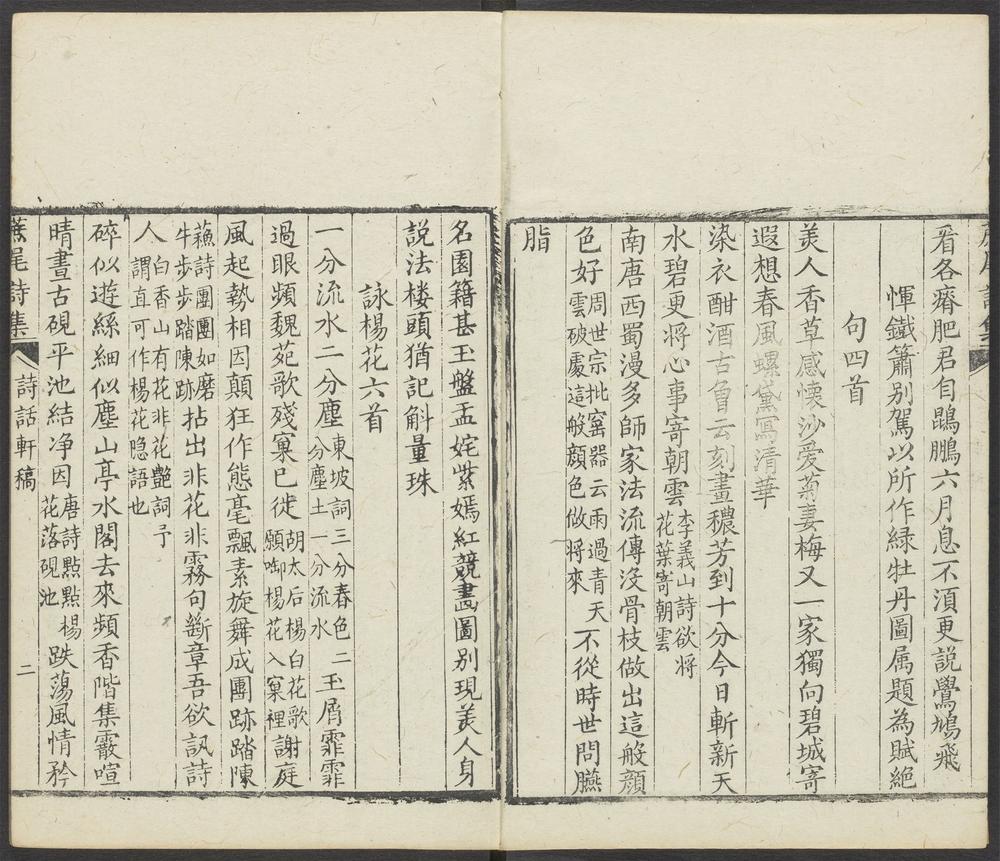 眉各瘠肥君自鵾鵬六月息不湏更說鷽鳩飛
惲鐵簫别駕以所作緑牡丹圖属題為賦絕
句四首
羙人香草感懷沙爱菊妻梅又一家獨向碧城寄
遐想春風螺黛寫清華
染衣酣酒古曾云刻畫穠芳到十分今日斬新天
水碧更将心事寄朝雲李義山詩欲将
花葉寄朝雲
南唐西蜀漫多師家法流傳没骨枝做出這般顔
色好周世宗批窰器云雨過青天
雲破處這般顔色做将來不從時世問臙
脂
名園籍甚玉盤盂姹紫嫣紅競畵圖别現羙人身
説法楼頭猶記斛量珠
詠楊花六首
一分流水二分塵東坡詞三分春色二
分塵土一分流水玉屑霏霏
過眼頻魏苑歌殘窠已徙胡太后楊白花歌
願啣楊花入窠裡謝庭
風起勢相因顛狂作態毫飄素旋舞成團跡踏陳
蘓詩團團如磨
牛步步踏陳跡拈出非花非霧句斷章吾欲訊詩
人白香山有花非花艷詞予
謂直可作楊花隐語也
碎似遊絲細似塵山亭水閣去來頻香階集霰喧
晴晝古硯平池結净因唐詩點點楊
花落硯池跌蕩風情矜
蕉尾詩集 詩話軒稿 二